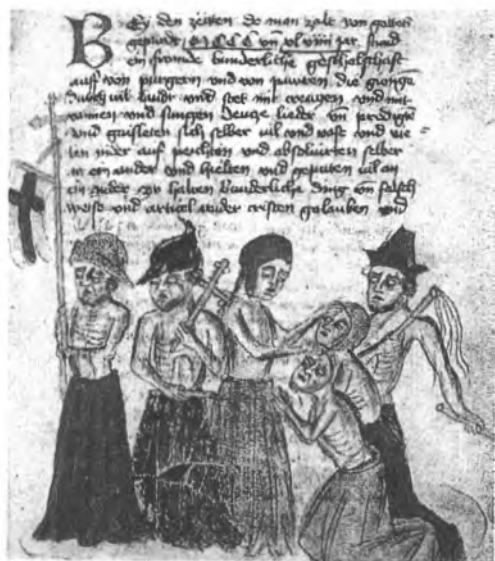 Bey den zeiten do man zalt von gottes
gepurdt M CCC vn xl viiii jar stund
ein fromde wunderliche geselschafft
auff von purgern vnd von pawren die gienge
durch vil landt vnd stet mit creuczen vnd mit
vannen vnd sungen Newge lieder vn predigte
vnd gaisleten sich selber vil vnd vast vnd vie =
len nider auff peichten vnd absoluirten selber
an ein ander vnd hielten vnd geputen vil an
ein ander zw halten wunderliche ding vn falsch
weise vnd articel wider cristen gelauben vnd